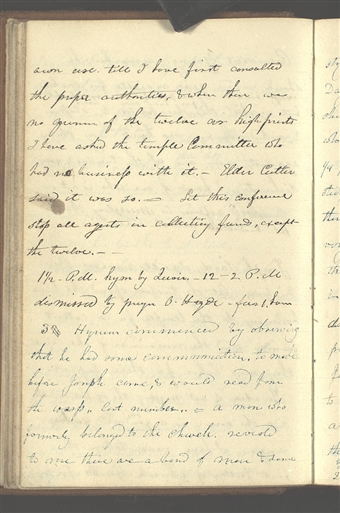 own use. till I have first consulted
the proper authorities, & when there was
no quorum of the twelve or high priests
I have asked the temple Committee who
had no business with it. — Elder Cutler
said it was so. — Let this conference
stop all agents in collecting funds, except
the twelve. — —
1½ P.M. hymn by Quoir. — 12-2 P.M
dismissed by prayer O. Hyde — for 1, hour
3 Hyrum commenced by observing
that he had some communication, to make
before Joseph came, & would read from
the wasp. last number. — a man who
formerly belonged to the church. revealed
to me there are a band of men & some